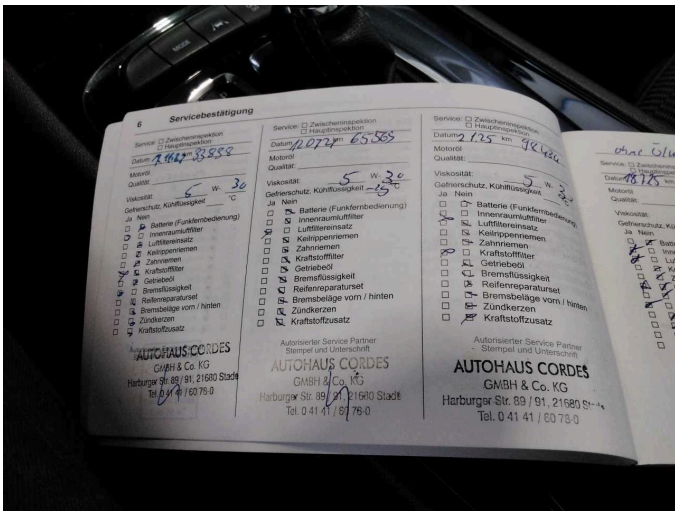 MODE
6 Servicebestätigung
Service: Zwischeninspektion
Hauptinspektion
Datum km 33838
Motoröl
Qualität:
Viskosität: 5 W- 30
Gefrierschutz, Kühlflüssigkeit °C
Ja Nein
Batterie (Funkfernbedienung)
Innenraumluftfilter
Luftfiltereinsatz
Keilrippenriemen
Zahnriemen
Kraftstofffilter
Getriebeöl
Bremsflüssigkeit
Reifenreparaturset
Bremsbeläge vorn / hinten
Zündkerzen
Kraftstoffzusatz
AUTOHAUS CORDES
GMBH & Co. KG
Harburger Str. 89 / 91, 21680 Stade
Tel. 0 41 41 / 60 76-0
Service: Zwischeninspektion
Hauptinspektion
Datum km 65565
Motoröl
Qualität:
Viskosität: 5 W- 30
Gefrierschutz, Kühlflüssigkeit -25 °C
Ja Nein
Batterie (Funkfernbedienung)
Innenraumluftfilter
Luftfiltereinsatz
Keilrippenriemen
Zahnriemen
Kraftstofffilter
Getriebeöl
Bremsflüssigkeit
Reifenreparaturset
Bremsbeläge vorn / hinten
Zündkerzen
Kraftstoffzusatz
Autorisierter Service Partner
Stempel und Unterschrift
AUTOHAUS CORDES
GMBH & Co. KG
Harburger Str. 89 / 91, 21680 Stade
Tel. 0 41 41 / 60 76-0
Service: Zwischeninspektion
Hauptinspektion
Datum 2.1.25 km
Motoröl
Qualität:
Viskosität: 5 W- 30
Gefrierschutz, Kühlflüssigkeit
Ja Nein
Batterie (Funkfernbedienung)
Innenraumluftfilter
Luftfiltereinsatz
Keilrippenriemen
Zahnriemen
Kraftstofffilter
Getriebeöl
Bremsflüssigkeit
Reifenreparaturset
Bremsbeläge vorn / hinten
Zündkerzen
Kraftstoffzusatz
Autorisierter Service Partner
- Stempel und Unterschrift
AUTOHAUS CORDES
GMBH & Co. KG
Harburger Str. 89 / 91, 21680
Tel. 0 41 41 / 60 76-0
ohne
Service:
Datum km
Motoröl
Qualität:
Viskosität:
Gefrierschutz,
Ja Nein